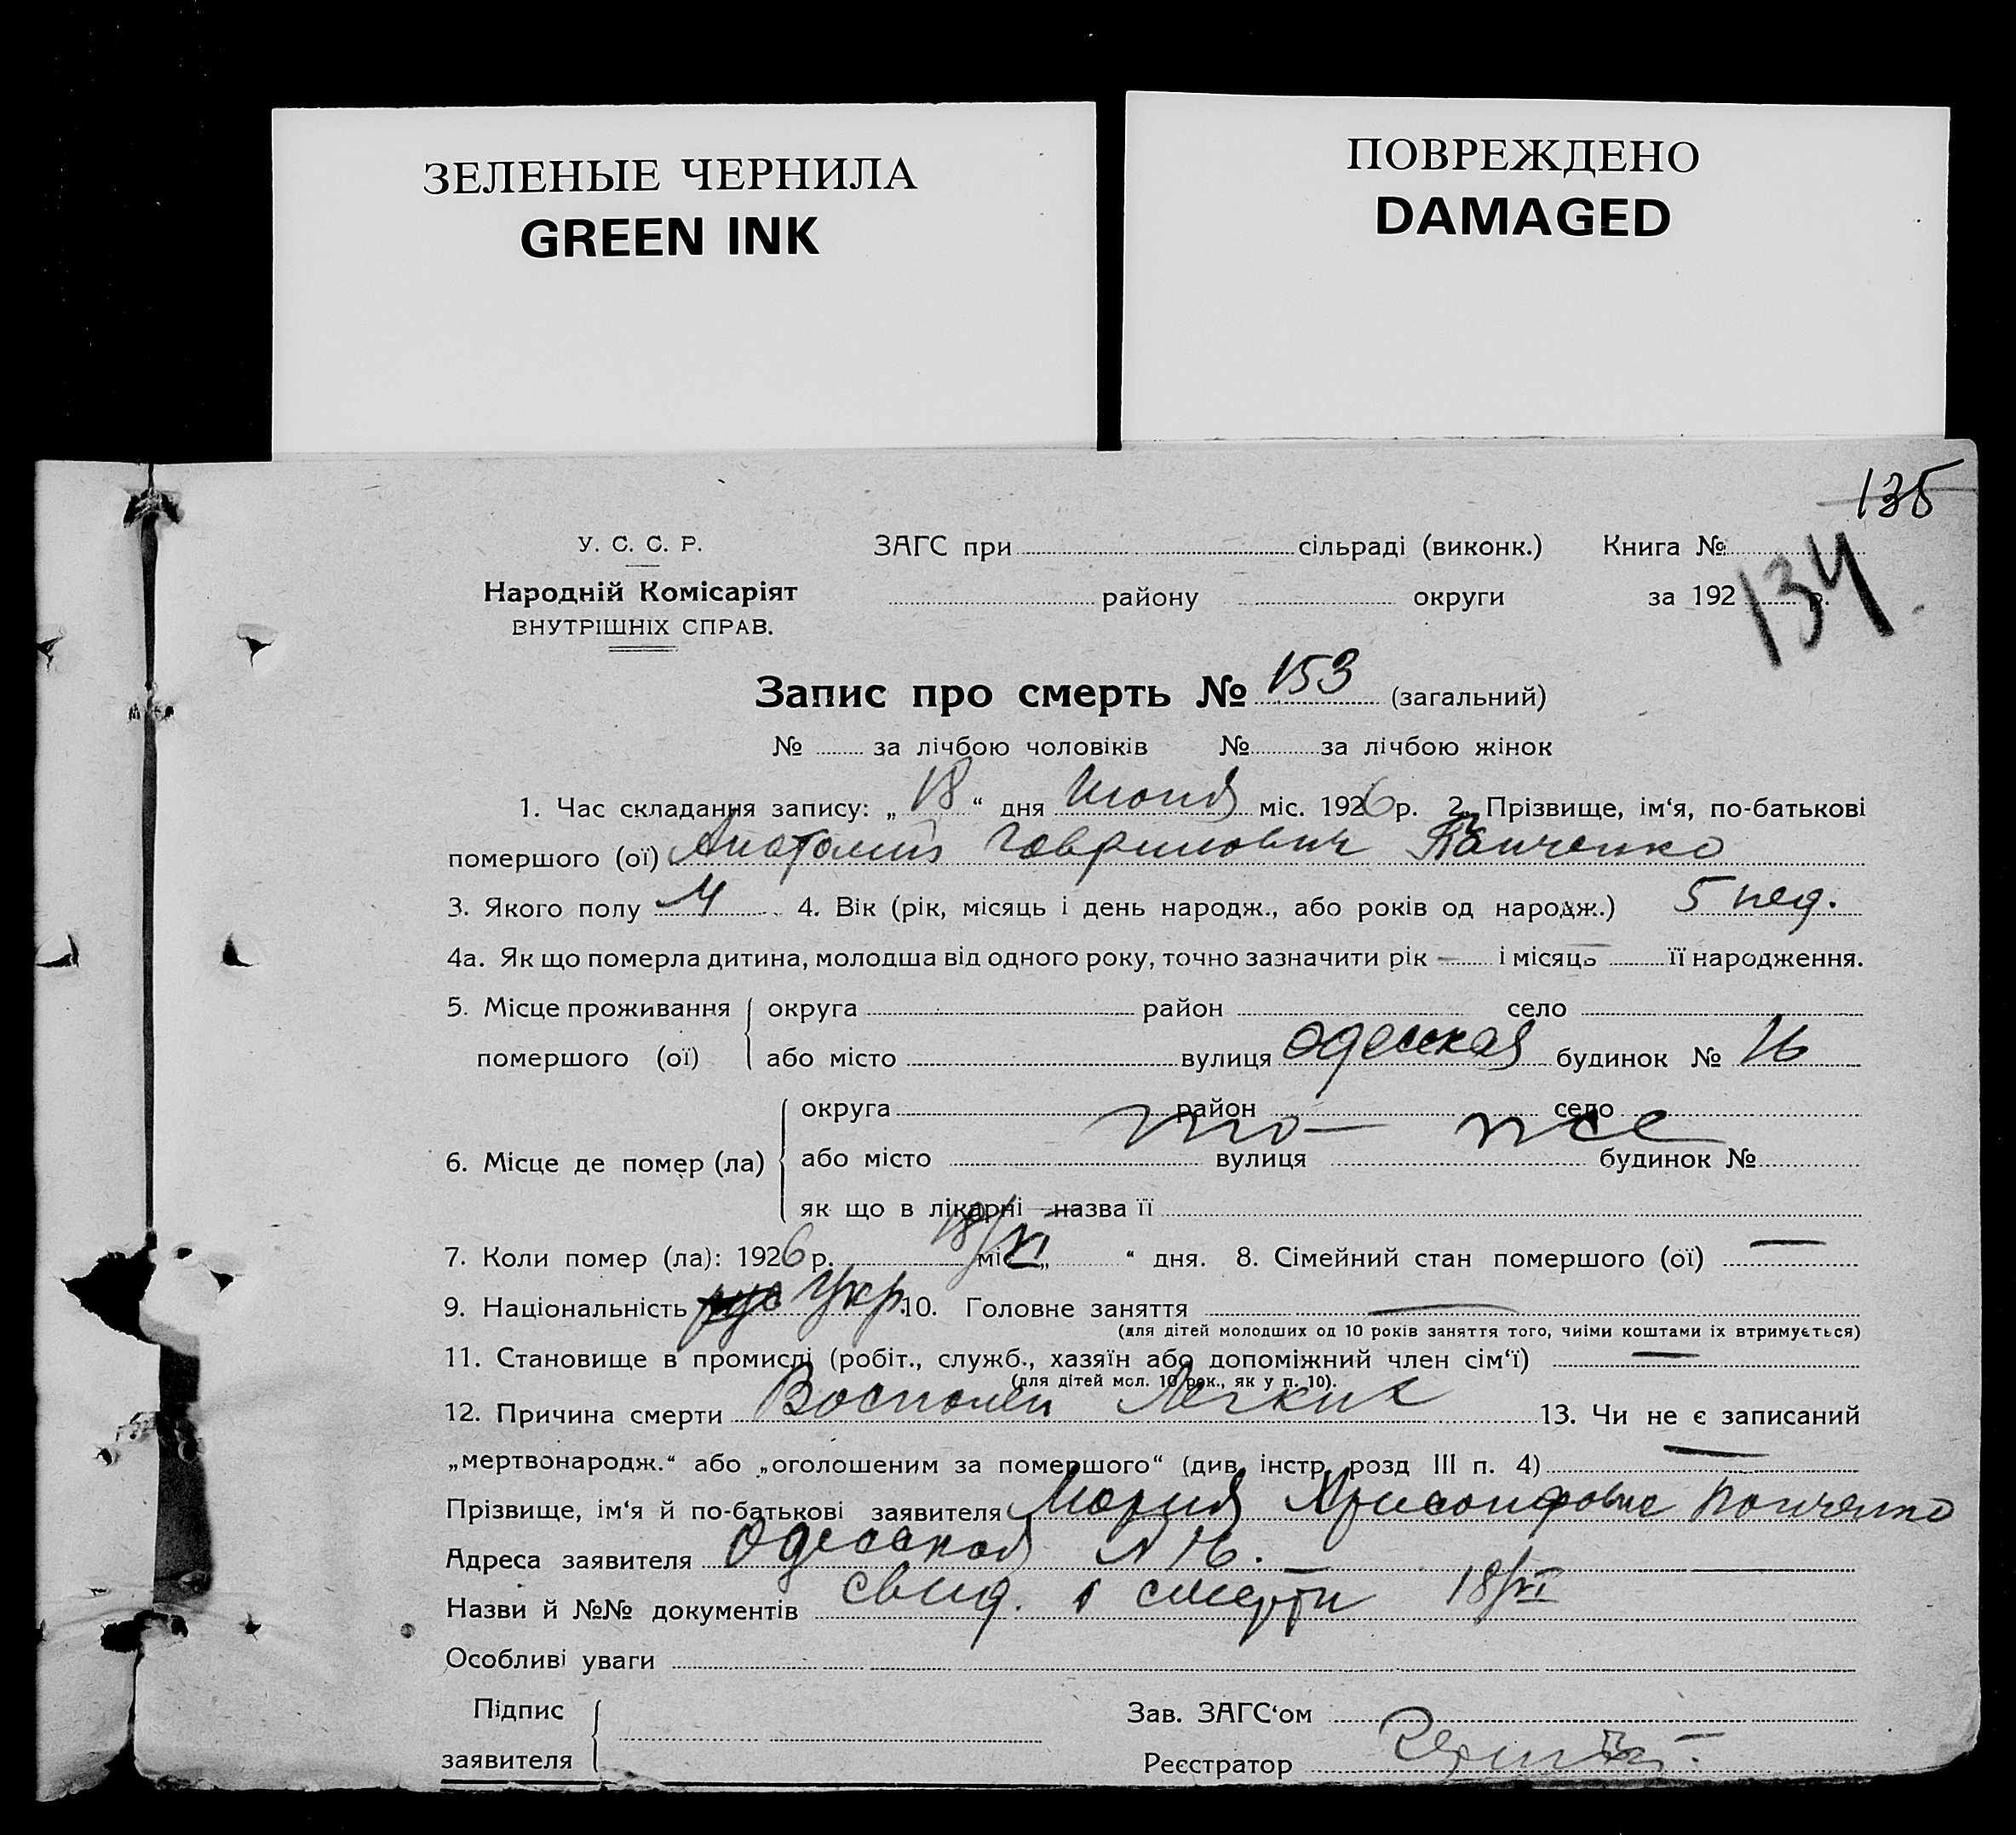 ЗЕЛЕНЫЕ ЧЕРНИЛА
GREEN INK
ПОВРЕЖДЕНО
DAMAGED
135
У. С. С. Р.
ЗАГС при сільраді (виконк.) Книга №
134
Народній Комісаріят
району округи за 192 р.
ВНУТРІШНІХ СПРАВ.
Запис про смерть № 153 (загальний)
№ за лічбою чоловіків № за лічбою жінок
1. Час складання запису: „ 18 “ дня Июня міс. 1926 р. 2. Прізвище, ім‘я, по-батькові
помершого (ої) Анатолий Гаврилович Панченко
3. Якого полу М 4. Вік (рік, місяць і день народж., або років од народж.) 5 нед.
4а. Як що померла дитина, молодша від одного року, точно зазначити рік — і місяць — її народження.
5. Місце проживання округа район село
помершого (ої) або місто вулиця Одесская будинок № 16
округа район село
то — же
6. Місце де помер (ла) або місто вулиця будинок №
як що в лікарні — назва її
7. Коли помер (ла): 1926 р. 18/VI міс. „ “ дня. 8. Сімейний стан помершого (ої) —
9. Національність рус Укр. 10. Головне заняття —
(для дітей молодших од 10 років заняття того, чиіми коштами їх втримується)
11. Становище в промислі (робіт., служб., хазяїн або допоміжний член сім‘ї) —
(для дітей мол. 10 рок., як у п. 10).
12. Причина смерти Воспален Легких 13. Чи не є записаний
„мертвонародж.“ або „оголошеним за помершого“ (див. інстр. розд III п. 4) —
Прізвище, ім‘я й по-батькові заявителя Мария Панченко
Адреса заявителя Одесская № 16.
Назви й №№ документів свид. о смерти 18/VI
Особливі уваги
Підпис
Зав. ЗАГС‘ом
заявителя
Реєстратор